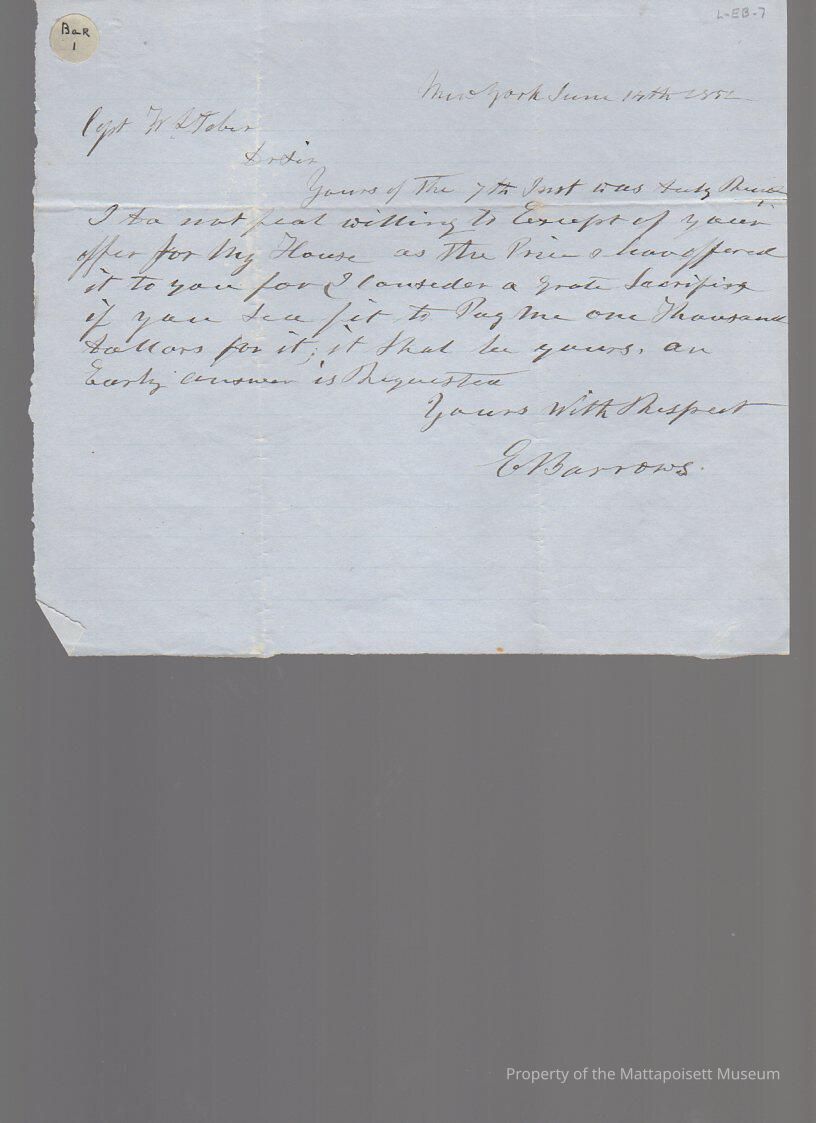 L-EB-7
BaR
1
New York June 14th 185
Capt W L Tober
Dr Sir
Yours of the 7th Inst was duly
I do not feal willing to Except of your
offer for My House as the Price I hav offered
it to you for I Consider a grate Sacrifise
if you See fit to Pay Me one Thousand
dollars for it; it Shal be yours. an
Early answer is Requested
Yours With Respect
E Barrows.
Property of the Mattapoisett Museum